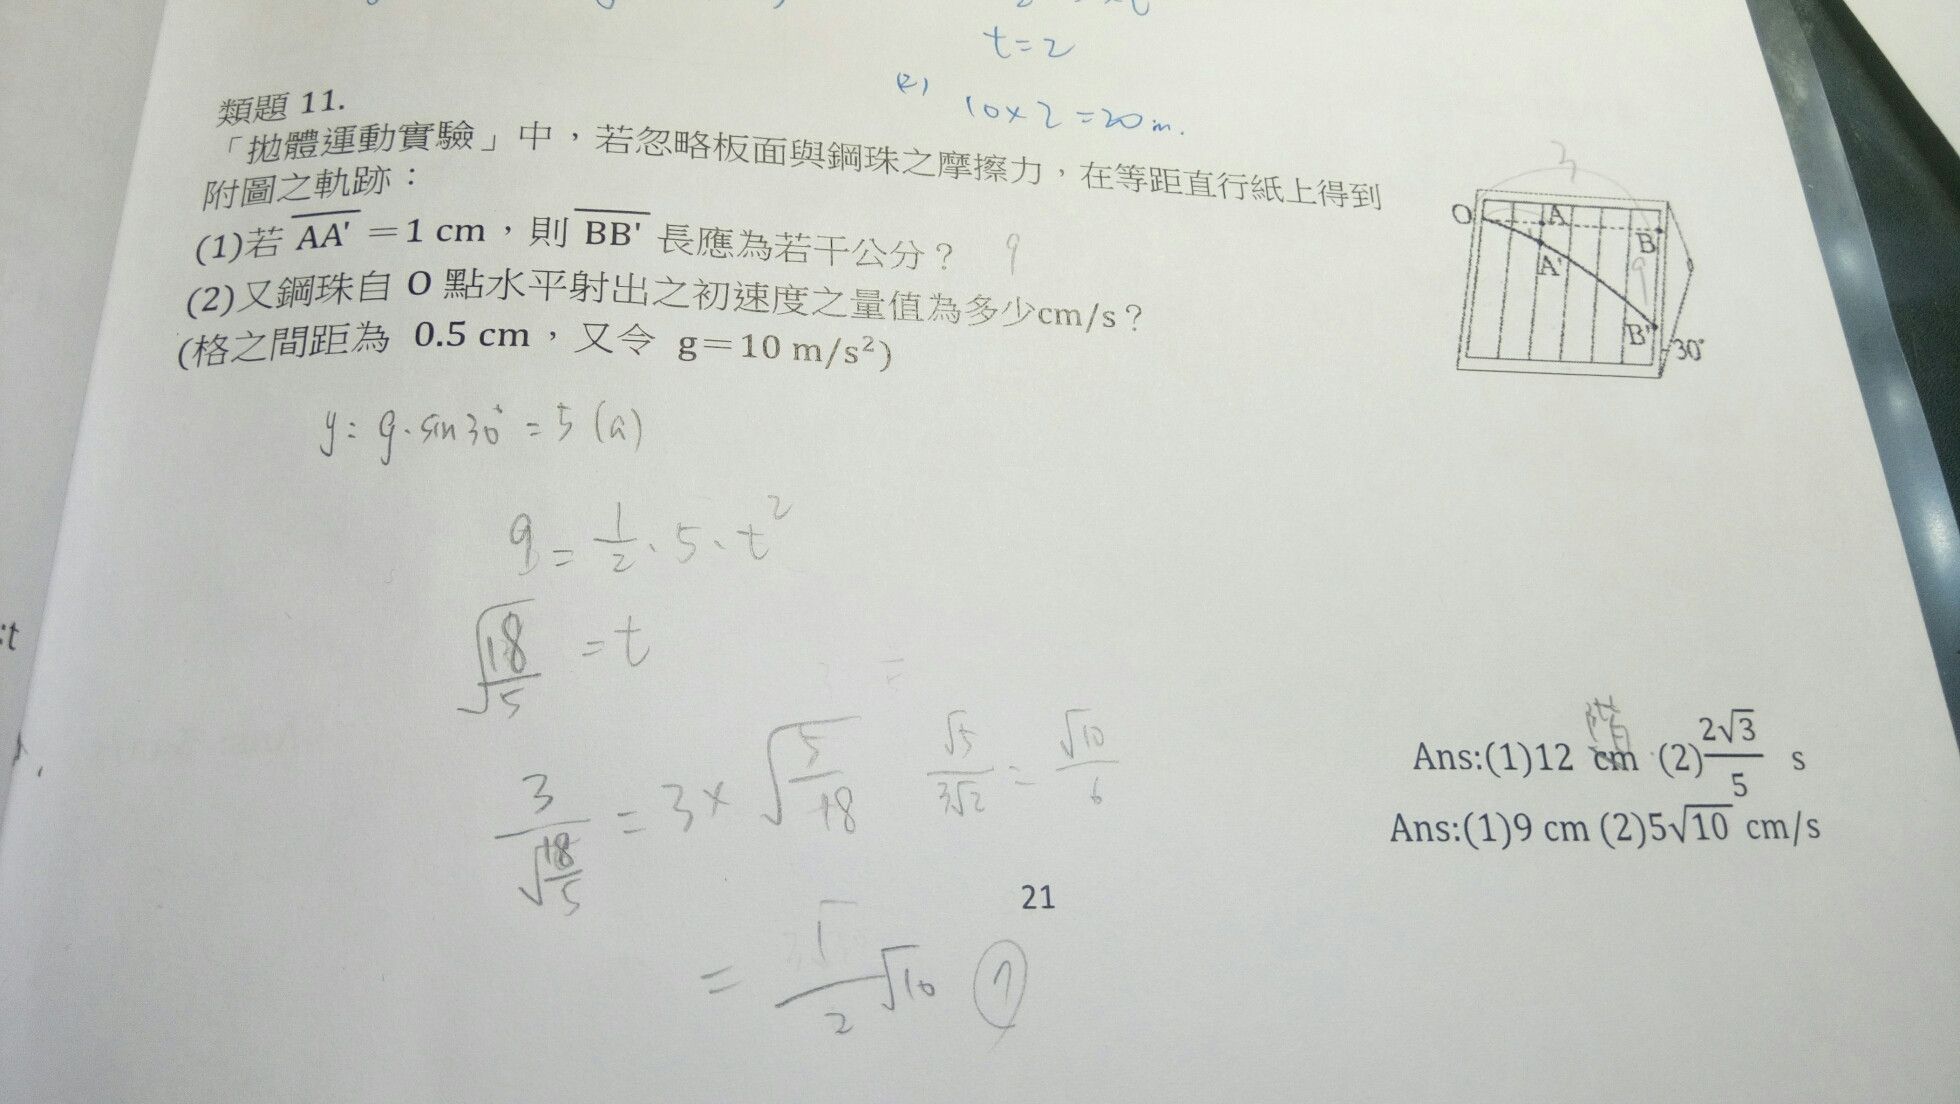 t=2
(2) 10×2=20m.
類題 11.
「拋體運動實驗」中，若忽略板面與鋼珠之摩擦力，在等距直行紙上得到
附圖之軌跡：
(1)若 AA' =1 cm，則 BB' 長應為若干公分？ 9
(2)又鋼珠自 O 點水平射出之初速度之量值為多少cm/s？
(格之間距為 0.5 cm，又令 g=10 m/s²)
3
O A B
A' 9
B' 30°
y= g·sin30° = 5 (a)
9 = 1/2 · 5 · t²
√(18/5) = t
3/√(18/5) = 3× √(5/18) √5/3√2 = √10/6
= /2 √10 ?
Ans:(1)12 cm (2) 2√3/5 s
Ans:(1)9 cm (2)5√10 cm/s
21
:t